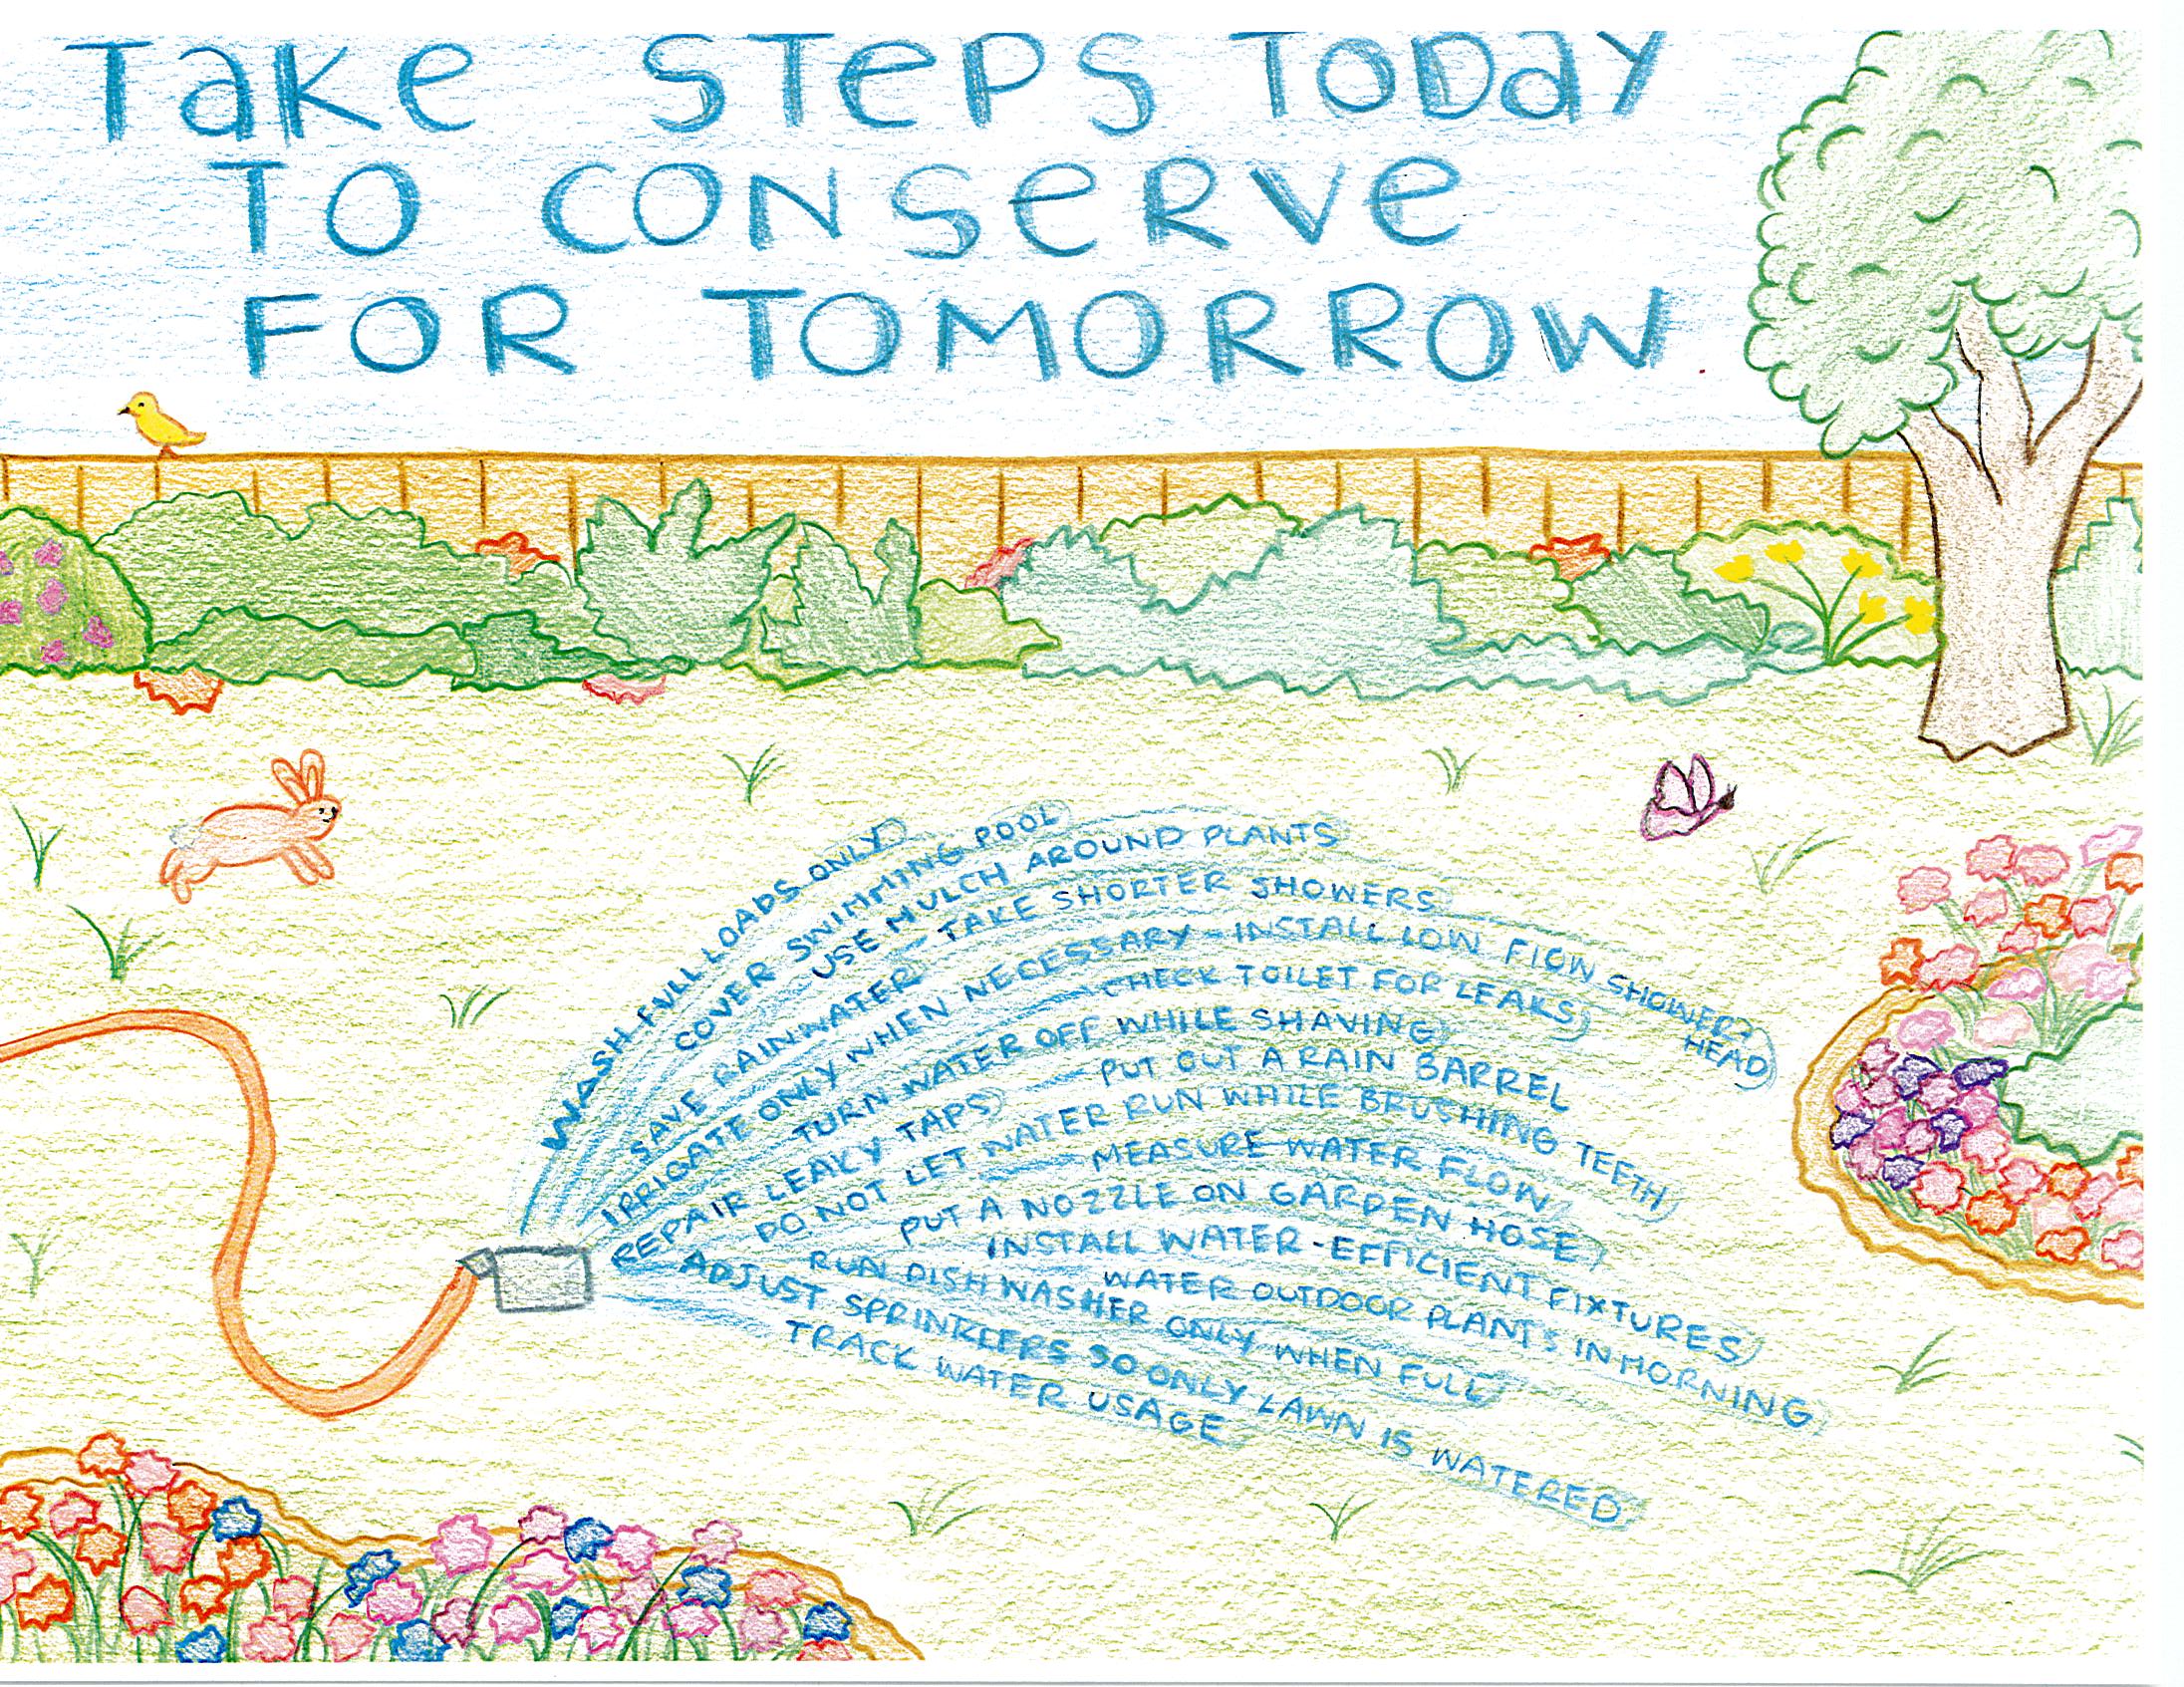 Take Steps Today
To Conserve
For Tomorrow
WASH FULL LOADS ONLY
COVER SWIMMING POOL
USE MULCH AROUND PLANTS
SAVE RAINWATER - TAKE SHORTER SHOWERS
IRRIGATE ONLY WHEN NECESSARY - INSTALL LOW FLOW SHOWER HEAD
CHECK TOILET FOR LEAKS
TURN WATER OFF WHILE SHAVING
REPAIR LEAKY TAPS
PUT OUT A RAIN BARREL
DO NOT LET WATER RUN WHILE BRUSHING TEETH
MEASURE WATER FLOW
PUT A NOZZLE ON GARDEN HOSE
INSTALL WATER-EFFICIENT FIXTURES
WATER OUTDOOR PLANTS IN MORNING
RUN DISHWASHER ONLY WHEN FULL
ADJUST SPRINKLERS SO ONLY LAWN IS WATERED
TRACK WATER USAGE